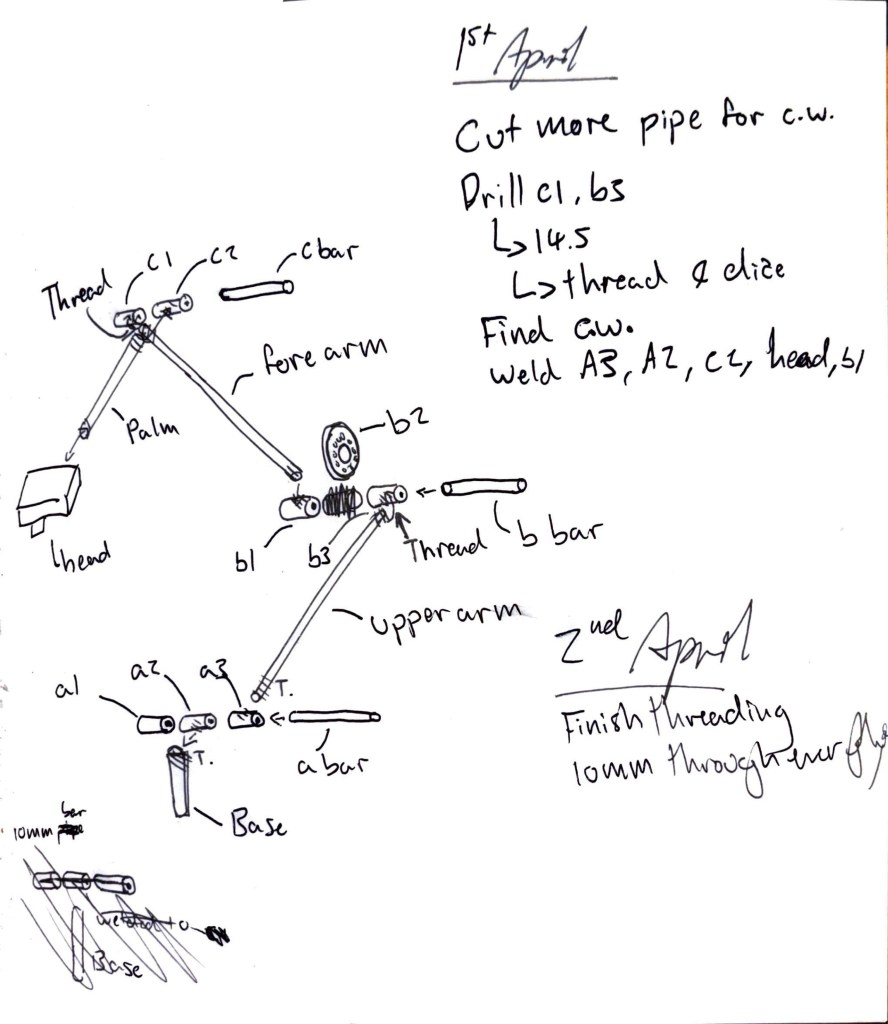 1st April
Cut more pipe for c.w.
Drill c1, b3
↳ 14.5
↳ thread & dice
Find c.w.
Weld A3, A2, c2, head, b1
Thread
C1
C2
C bar
fore arm
Palm
head
b2
b1
b3
Thread
b bar
upper arm
a1
a2
a3
T.
T.
a bar
Base
10mm bar
welded to
Base
2nd April
Finish threading
10mm through